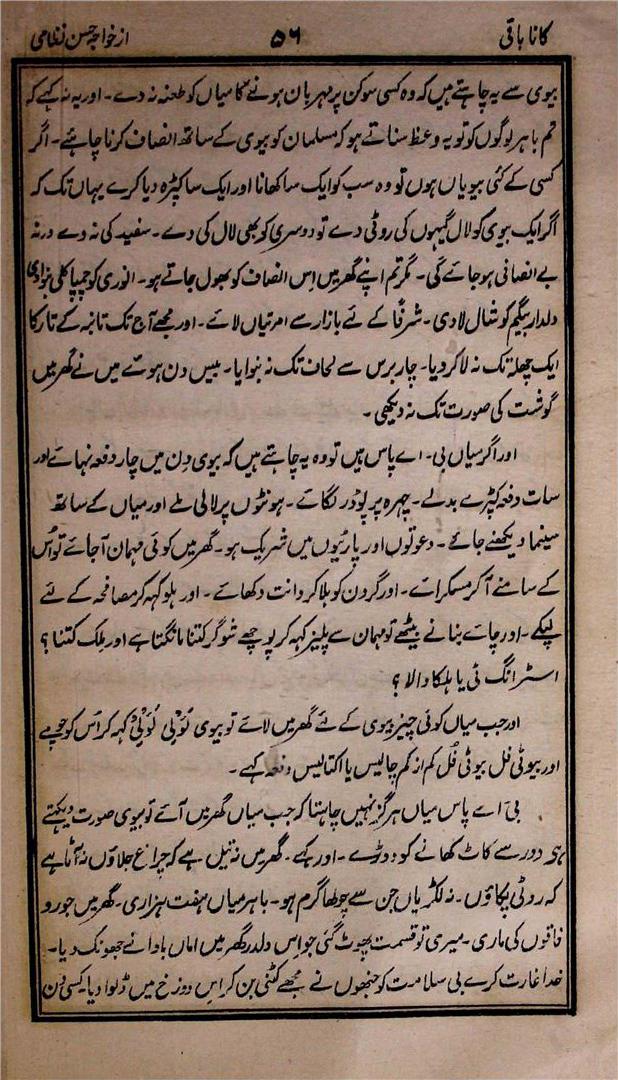 کانا باتی
۵۶
از خواجہ حسن نظامی
بیوی سے یہ چاہتے ہیں کہ وہ کسی سوکن پر مہربان ہونے کا میاں کو طعنہ نہ دے۔ اور یہ نہ کہے کہ
تم باہر لوگوں کو تو یہ وعظ سناتے ہو کہ مسلمان کو بیوی کے ساتھ انصاف کرنا چاہئے۔ اگر
کسی کے کئی بیویاں ہوں تو وہ سب کو ایک سا کھانا اور ایک سا کپڑہ دیا کرے یہاں تک کہ
اگر ایک بیوی کو لال گیہوں کی روٹی دے تو دوسری کو بھی لال کی دے۔ سفید کی نہ دے ورنہ
بے انصافی ہو جائے گی۔ مگر تم اپنے گھر میں اس انصاف کو بھول جاتے ہو۔ انوری کو چمپا کلی بنوادی
دلدار بیگم کو شال لادی۔ شرفُا کے لئے بازار سے امرتیاں لائے۔ اور مجھے آج تک تانبہ کے تار کا
ایک چھلہ تک نہ لا کر دیا۔ چار برس سے لحاف تک نہ بنوایا۔ بیس دن ہوئے میں نے گھر میں
گوشت کی صورت تک نہ دیکھی۔
اور اگر میاں بی۔ اے پاس ہیں تو وہ یہ چاہتے ہیں کہ بیوی دن میں چار دفعہ نہائے اور
سات دفعہ کپڑے بدلے۔ چہرہ پر پوڈر لگائے۔ ہونٹوں پر لالی ملے اور میاں کے ساتھ
سینما دیکھنے جائے۔ دعوتوں اور پارٹیوں میں شریک ہو۔ گھر میں کوئی مہمان آجائے تو اُس
کے سامنے آکر مسکرائے۔ اور گردن کو ہلا کر دانت دکھائے۔ اور ہلو کہہ کر مصافحہ کے لئے
لپکے۔ اور چائے بنانے بیٹھے تو مہمان سے پلیز کہہ کر پوچھے شوگر کتنا مانگتا ہے اور ملک کتنا؟
اسٹرانگ ٹی یا ہلکا والا؟
اور جب میاں کوئی چیز بیوی کے لئے گھر میں لائے تو بیوی لَوْلی لَوْلی کہہ کر اس کو چومے
اور بیوٹی فل بیوٹی فُل کم از کم چالیس یا اکتالیس دفعہ کہے۔
بی اے پاس میاں ہرگز نہیں چاہتا کہ جب میاں گھر میں آئے تو بیوی صورت دیکھتے
ہی دور سے کاٹ کھانے کو دوڑے۔ اور کہے۔ گھر میں نہ تیل ہے کہ چراغ جلاؤں نہ آٹا ہے
کہ روٹی پکاؤں۔ نہ لکڑیاں جن سے چولھا گرم ہو۔ باہر میاں ہفت ہزاری۔ گھر میں جورو
فاقوں کی ماری۔ میری تو قسمت پھوٹ گئی جو اس دلدر گھر میں اماں باوا نے جھونک دیا۔
خدا غارت کرے بی سلامت کو جنھوں نے مجھے کٹنی بن کر اس دوزخ میں ڈلوا دیا۔ کیسی